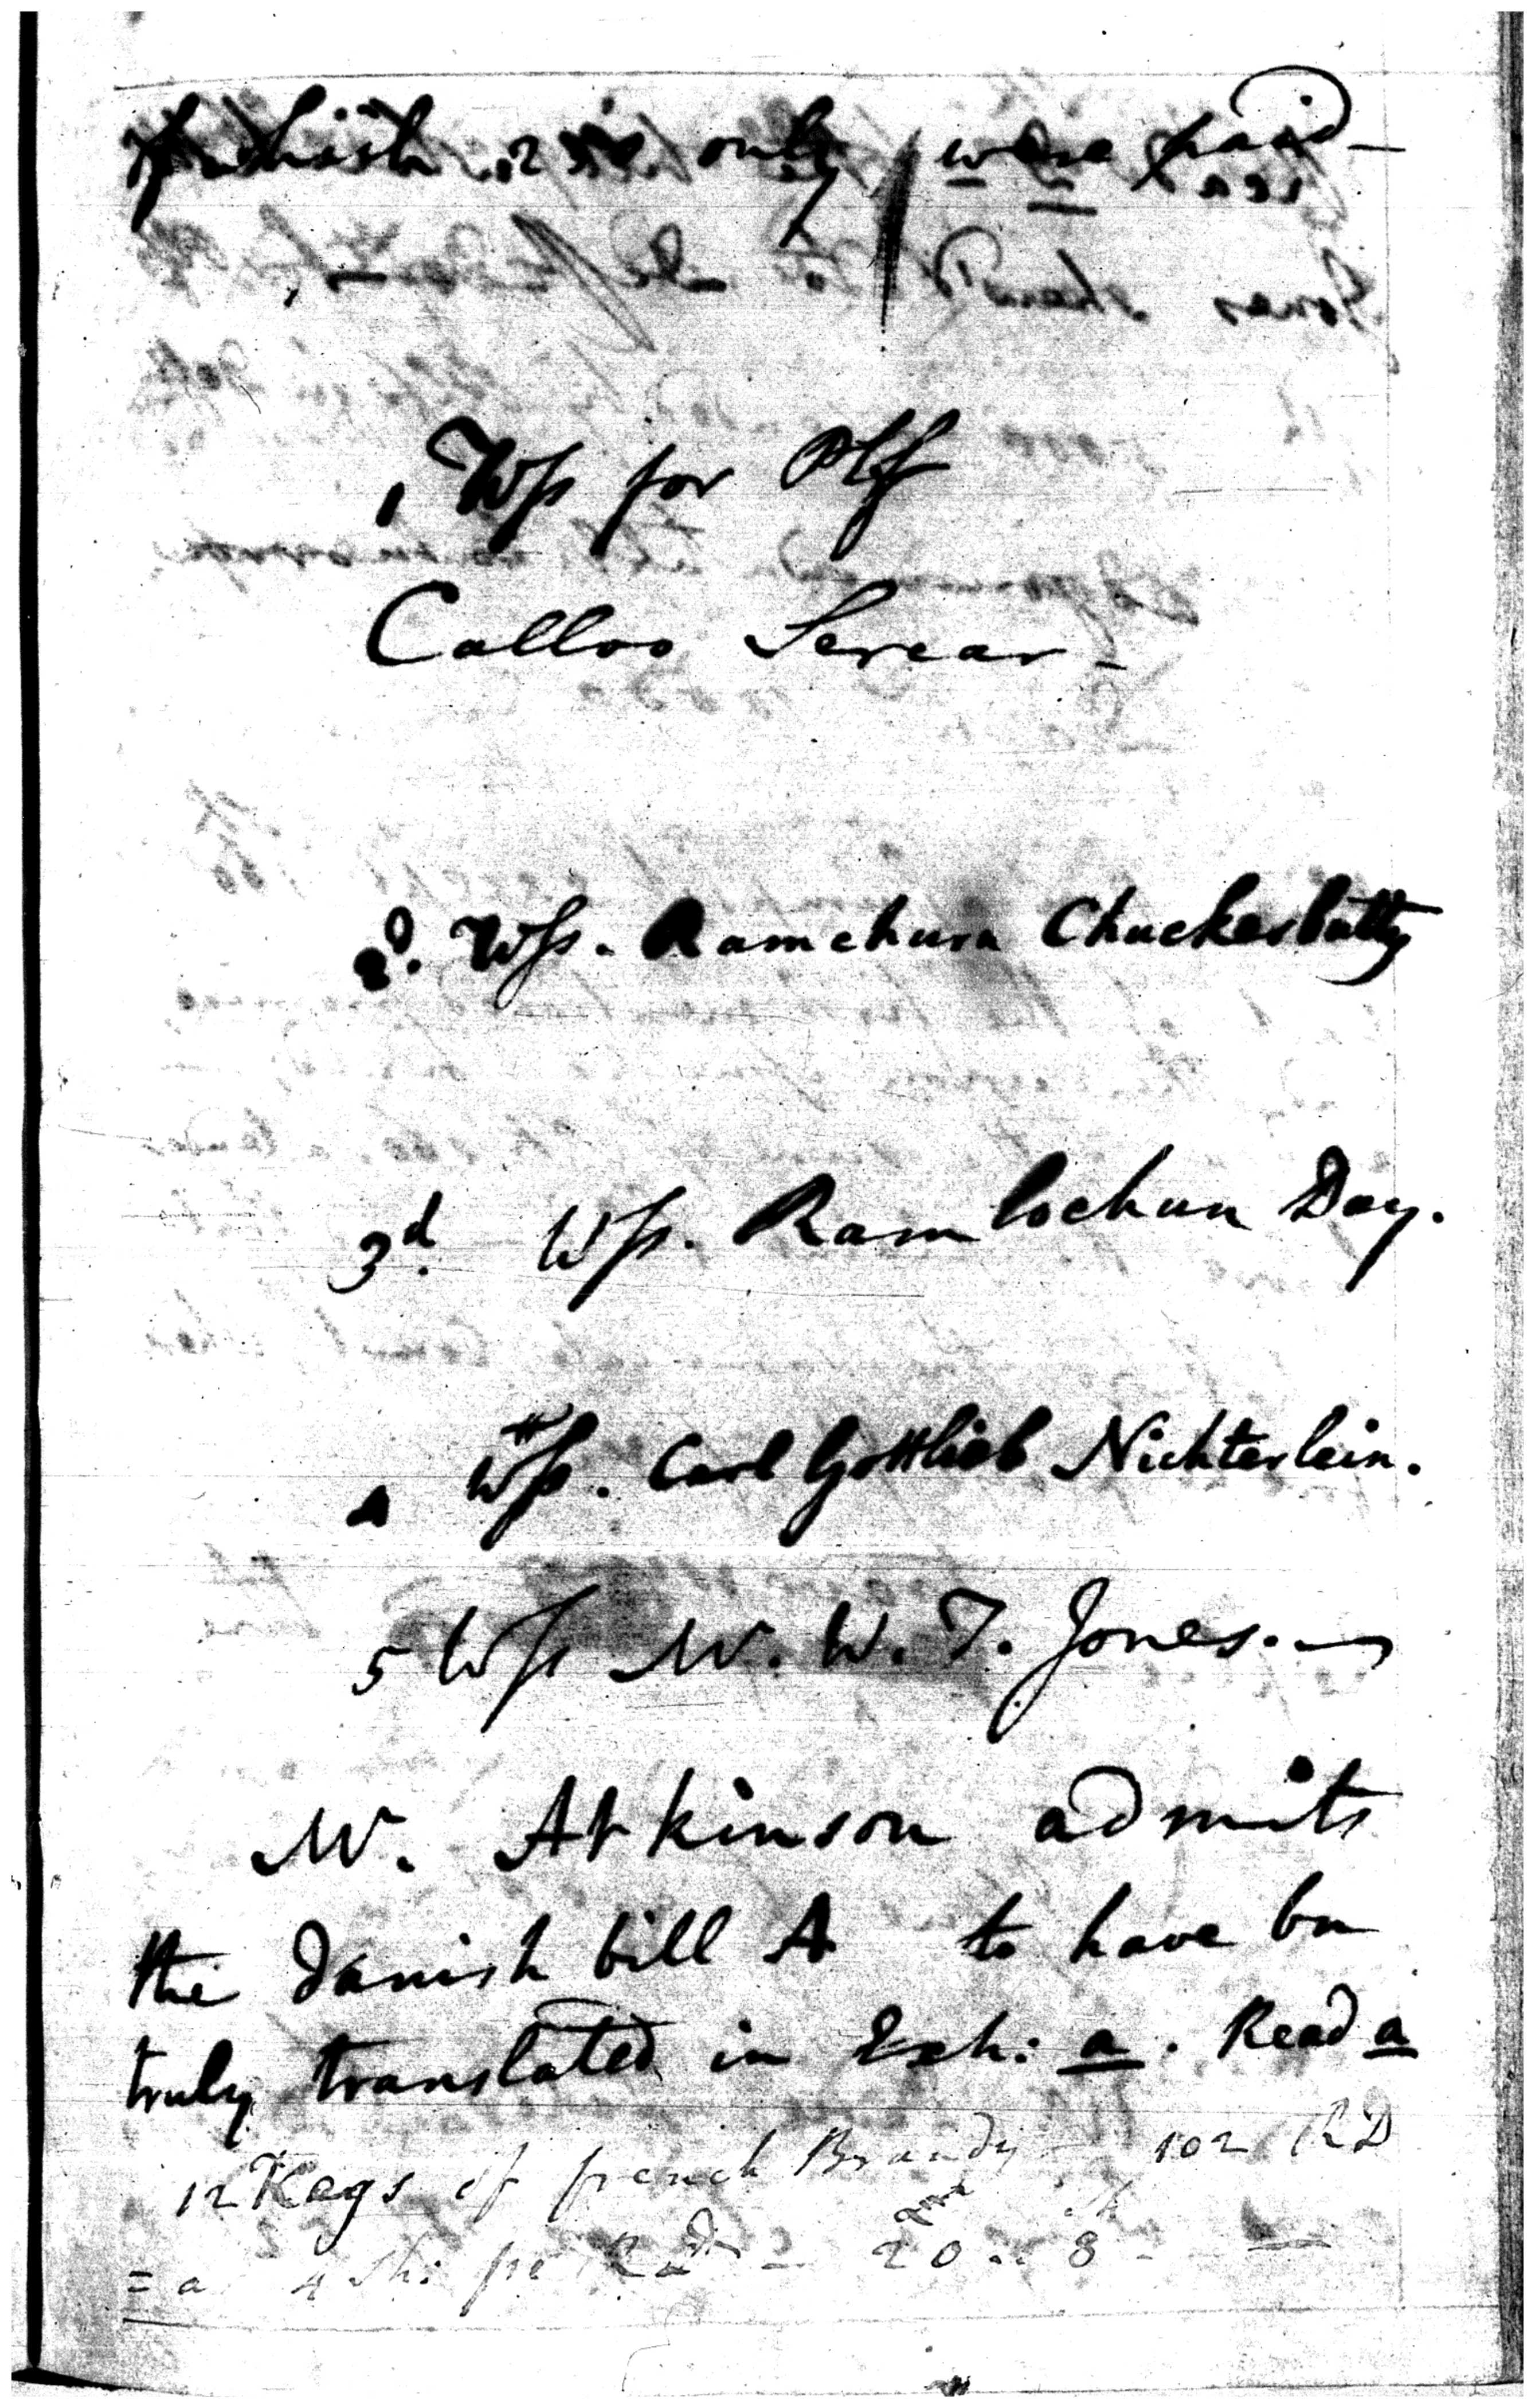 of which 2 only were paid —
1 Wss for Plf
Calloo Sercar —
2d. Wss. Ramchurn Chuckerbutty
3d. Wss. Ramlochun Dey.
4 Wss. Carl Gottlieb Nichterlein.
5 Wss Mr. W. T. Jones. —
Mr. Atkinson admits
the Danish bill A to have bn
truly translated in Exh: a. Read a
12 Kegs of french Brandy 102 RD
= a 4 sh: per Rd — 20 .. 8 - —